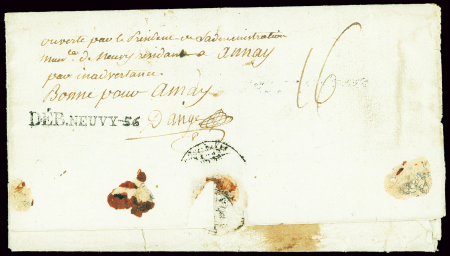 ouverte par le President de Ladministration
mun.ale de Neuvy residant a annay
par inadvertance
Bonne pour annay
16
DÉB. NEUVY-56